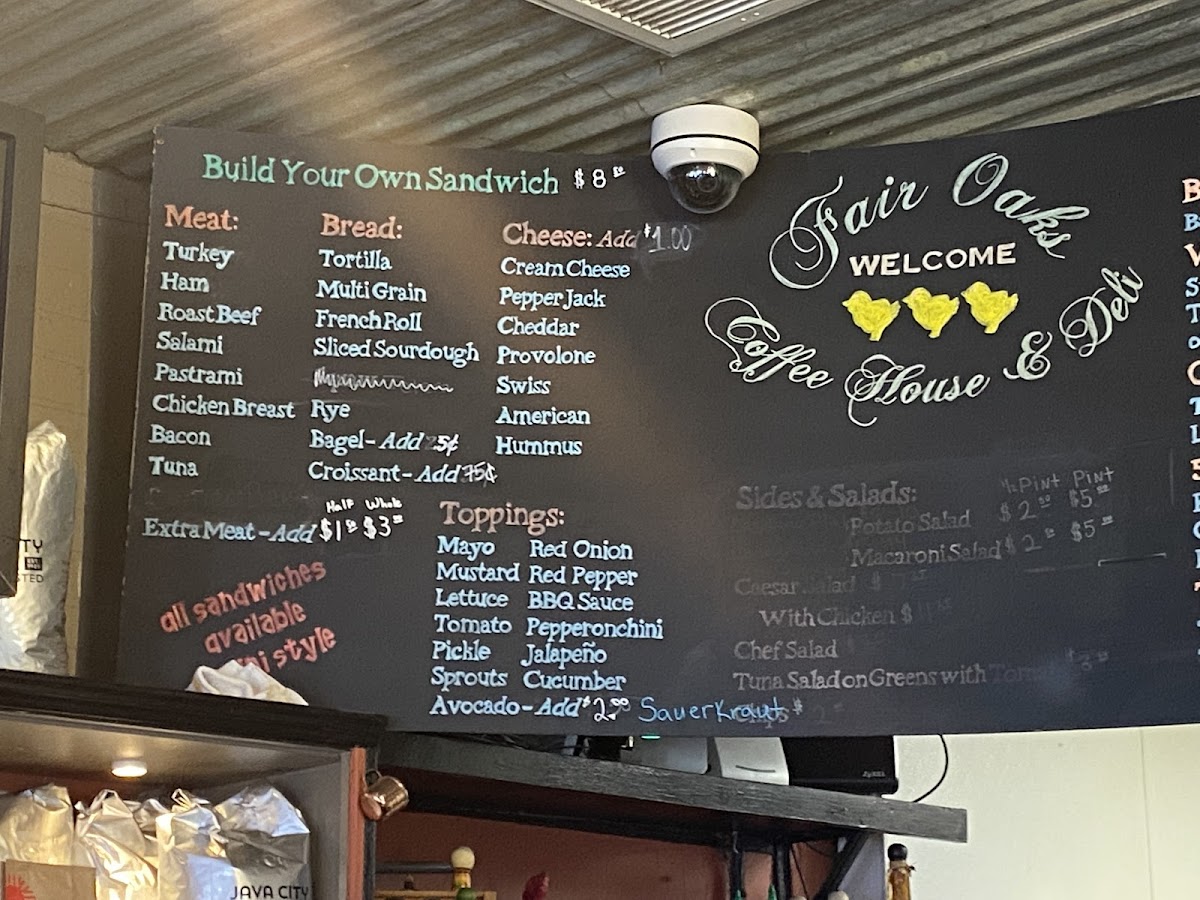 Build Your Own Sandwich $8 50
Meat:
Turkey
Ham
Roast Beef
Salami
Pastrami
Chicken Breast
Bacon
Tuna
Extra Meat - Add Half $1 50 Whole $3 00
Bread:
Tortilla
Multi Grain
French Roll
Sliced Sourdough
Rye
Bagel - Add 25¢
Croissant - Add 75¢
Cheese: Add $1.00
Cream Cheese
Pepper Jack
Cheddar
Provolone
Swiss
American
Hummus
all sandwiches
available
style
Toppings:
Mayo
Mustard
Lettuce
Tomato
Pickle
Sprouts
Avocado - Add $2.00
Red Onion
Red Pepper
BBQ Sauce
Pepperonchini
Jalapeño
Cucumber
SauerKraut
Fair Oaks
WELCOME
Coffee House & Deli
Sides & Salads:
½ Pint Pint
Potato Salad $2 50 $5 00
Macaroni Salad $2 50 $5 00
Caesar Salad
With Chicken $
Chef Salad
Tuna Salad on Greens with
JAVA CITY
ZyXEL